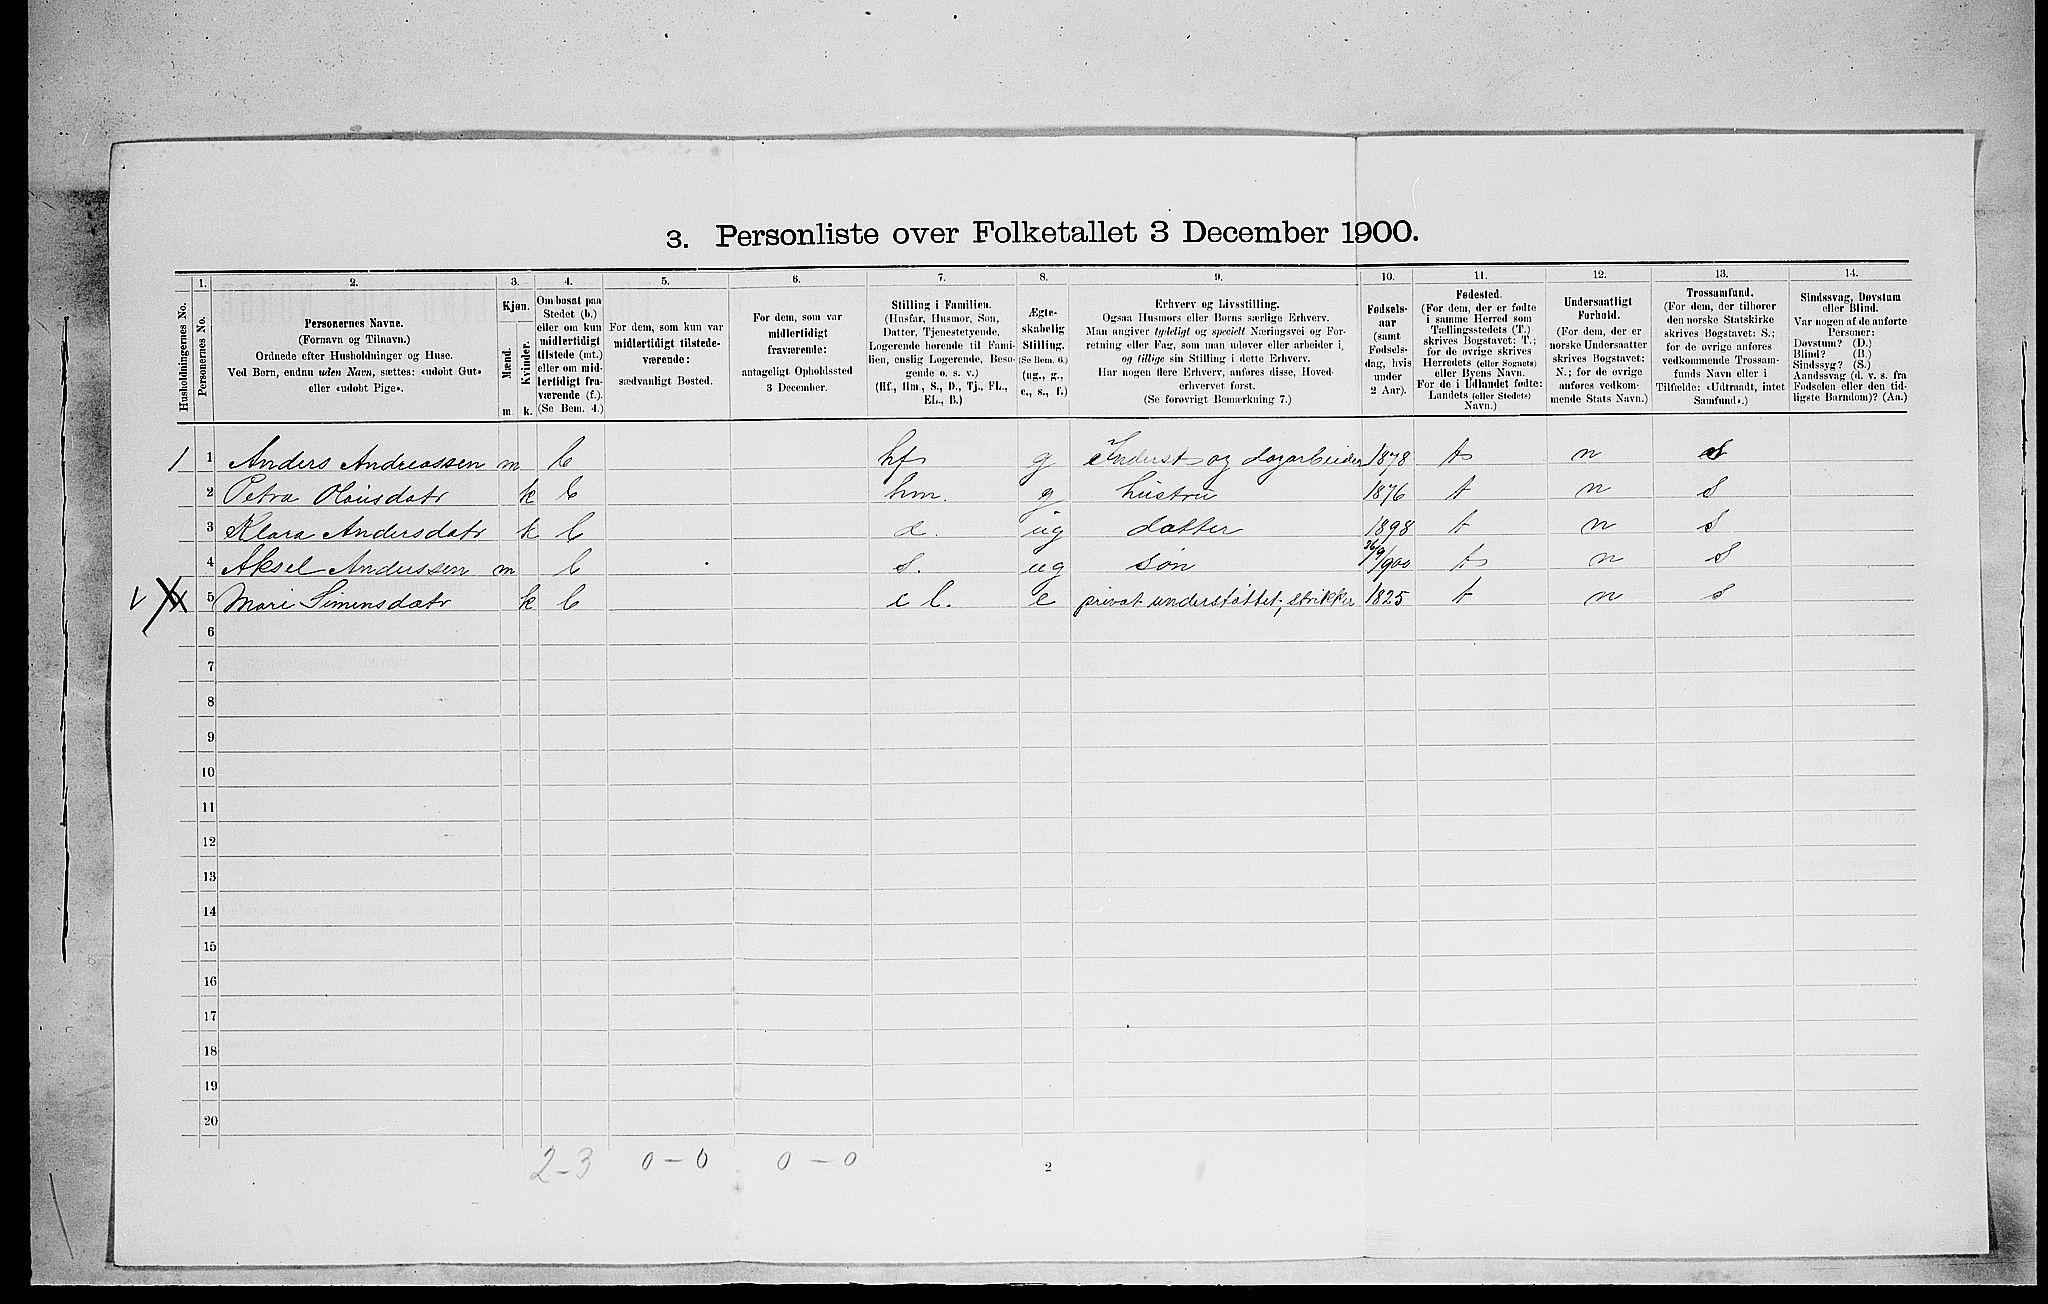 3. Personliste over Folketallet 3 December 1900.
Husholdningernes No.
1.
Personernes No.
2.
Personernes Navne.
(Fornavn og Tilnavn.)
Ordnede efter Husholdninger og Huse.
Ved Børn, endnu uden Navn, sættes: «udøbt Gut»
eller «udøbt Pige».
3.
Kjøn.
Mænd.
Kvinder.
m. k.
4.
Om bosat paa
Stedet (b.)
eller om kun
midlertidigt
tilstede (mt.)
eller om mid-
lertidigt fra-
værende (f.).
(Se Bem. 4.)
5.
For dem, som kun var
midlertidigt tilstede-
værende:
sædvanligt Bosted.
6.
For dem, som var
midlertidigt
fraværende:
antageligt Opholdssted
3 December.
7.
Stilling i Familien.
(Husfar, Husmor, Søn,
Datter, Tjenestetyende,
Logerende hørende til Fami-
lien, enslig Logerende, Besø-
gende o. s. v.)
(Hf., Hm., S., D., Tj., FL.,
EL., B.)
8.
Ægte-
skabelig
Stilling.
(Se Bem. 6.)
(ug., g.,
e., s., f.)
9.
Erhverv og Livsstilling.
Ogsaa Husmors eller Børns særlige Erhverv.
Man angiver tydeligt og specielt Næringsvei og For-
retning eller Fag, som man udøver eller arbeider i,
og tillige sin Stilling i dette Erhverv.
Har nogen flere Erhverv, anføres disse, Hoved-
erhvervet først.
(Se forøvrigt Bemærkning 7.)
10.
Fødsels-
aar
(samt
Fødsels-
dag, hvis
under
2 Aar).
11.
Fødested.
(For dem, der er fødte
i samme Herred som
Tællingsstedets (T.)
skrives Bogstavet: T.;
for de øvrige skrives
Herredets (eller Sognets)
eller Byens Navn.
For de i Udlandet fødte:
Landets (eller Stedets)
Navn.)
12.
Undersaatligt
Forhold.
(For dem, der er
norske Undersaatter
skrives Bogstavet:
N.; for de øvrige
anføres vedkom-
mende Stats Navn.)
13.
Trossamfund.
(For dem, der tilhører
den norske Statskirke
skrives Bogstavet: S.;
for de øvrige anføres
vedkommende Trossam-
funds Navn eller i
Tilfælde: «Udtraadt, intet
Samfund».)
14.
Sindssvag, Døvstum
eller Blind.
Var nogen af de anførte
Personer:
Døvstum? (D.)
Blind? (B.)
Sindssyg? (S.)
Aandssvag (d. v. s. fra
Fødselen eller den tid-
ligste Barndom)? (Aa.)
1 1 Anders Andreassen m b hf g Inderst og dagarbeider 1878 t n s
2 Petra Olausdatr k b hm. g hustru 1876 t n s
3 Klara Andersdatr k b d. ug datter 1898 t n s
4 Aksel Anderssen m b s. ug søn 26/9/900 t n s
5 Mari Simensdatr k b e l. e privat understøttet; strikker 1825 t n s
6
7
8
9
10
11
12
13
14
15
16
17
18
19
20
2-3 0-0 0-0
2